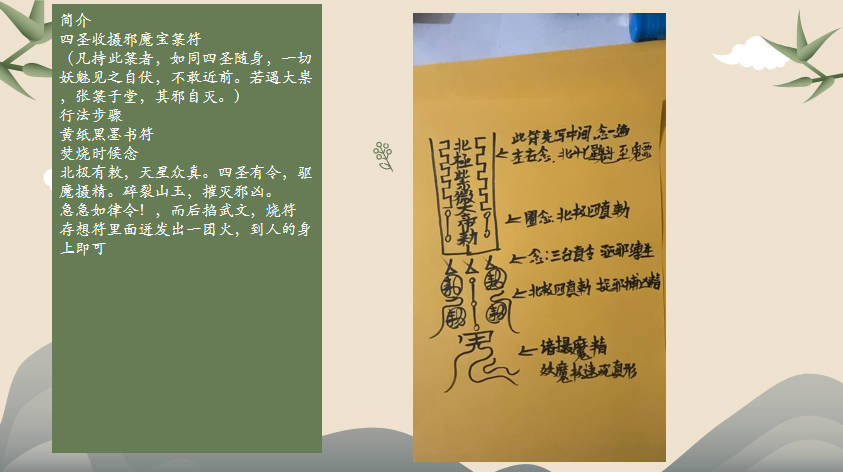 简介
四圣收摄邪魔宝箓符
（凡持此箓者，如同四圣随身，一切
妖魅见之自伏，不敢近前。若遇大祟
，张箓于堂，其邪自灭。）
行法步骤
黄纸黑墨书符
焚烧时候念
北极有敕，天星众真。四圣有令，驱
魔摄精。碎裂山玉，摧灭邪凶。
急急如律令！，而后掐武文，烧符
存想符里面迸发出一团火，到人的身
上即可
北極紫微大帝勅
此符先写中间 念一遍
左右念
圈念 北极四真勅
念：三台真令
北极四真勅
摄魔精
妖魔
真形